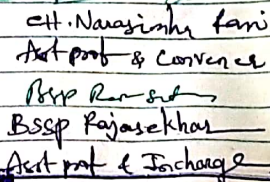 CH. Narasimha Rani
Asst prof & Convener
BSSP Rajasekhar
Asst prof & Incharge